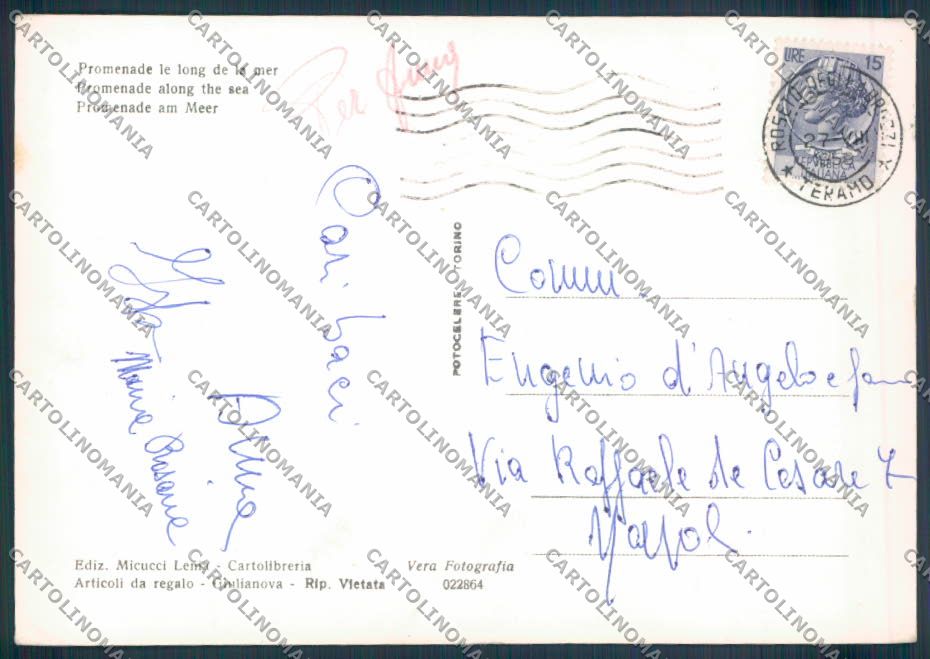 Promenade le long de la mer
Promenade along the sea
Promenade am Meer
Per Anna
LIRE 15
REPVBBLICA
ITALIANA
ROSETO DEGLI ABRUZZI
* TERAMO *
Cari baci
Anna
Maria Rosaria
FOTOCELERE - TORINO
Comm.
Eugenio d'Angelo e fam
Via Raffaele de Cesare 7
Napoli
Ediz. Micucci Lema - Cartolibreria
Articoli da regalo - Giulianova - Rip. Vietata
Vera Fotografia
022864
CARTOLINOMANIA